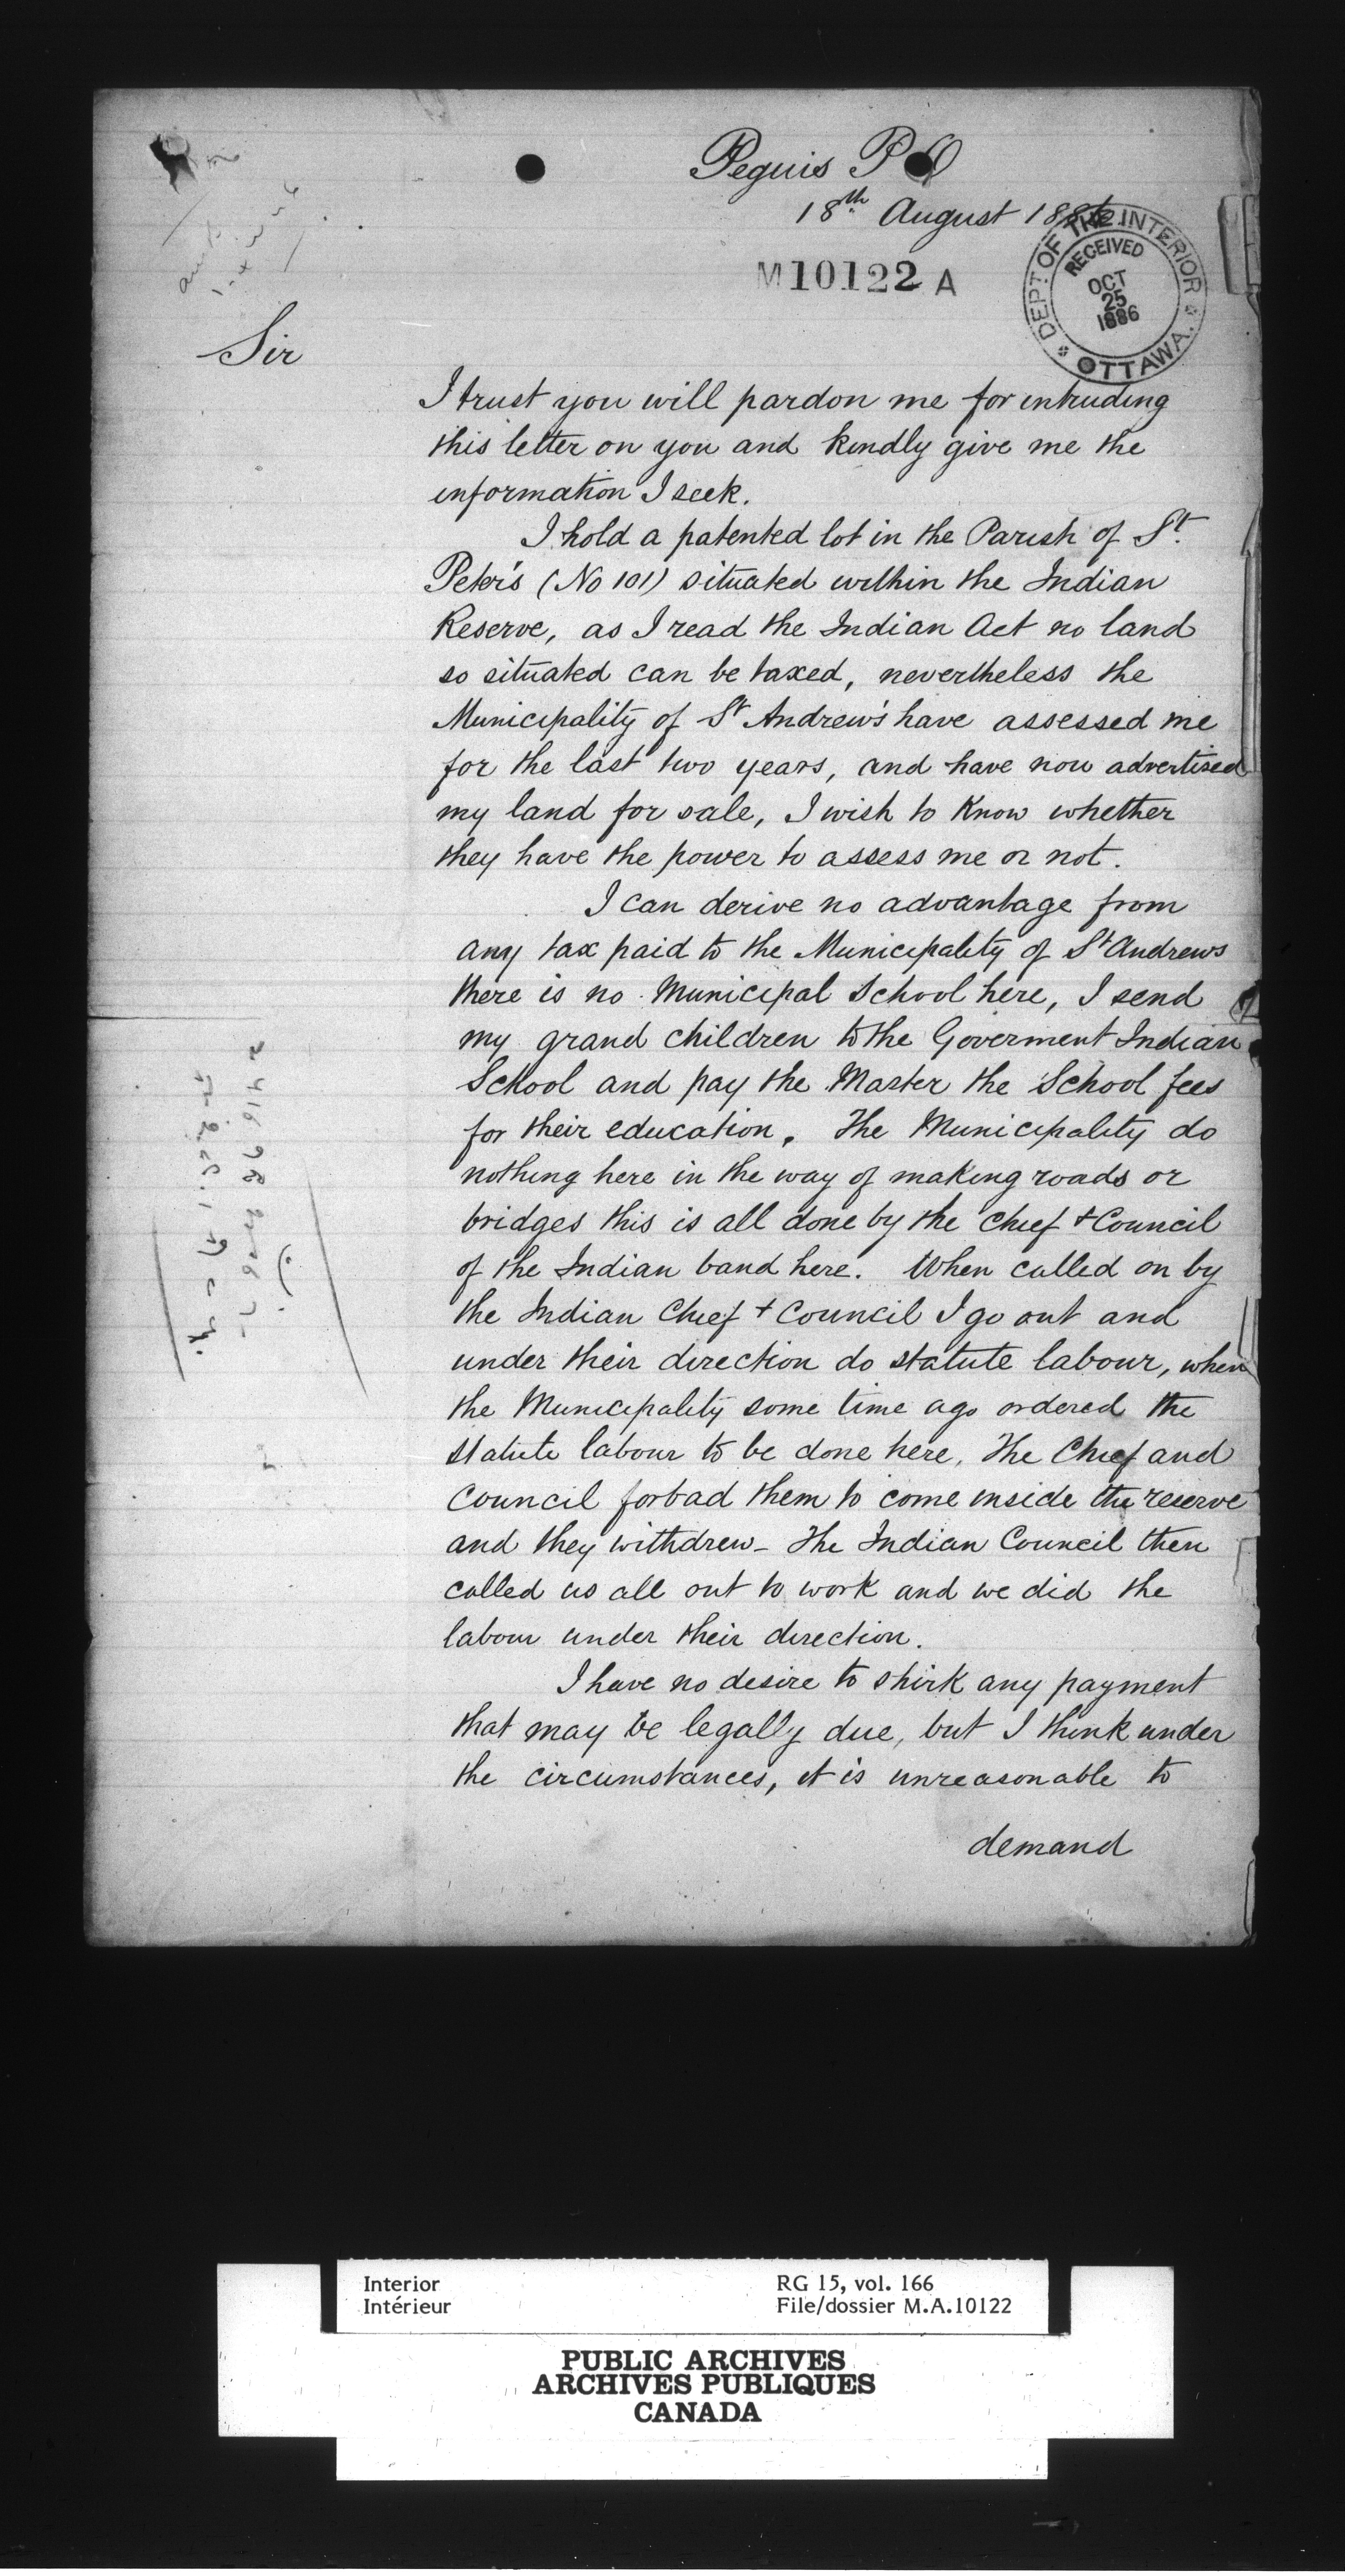 Peguis P O
18th August 1886.
M10122 A
DEPT OF THE INTERIOR
RECEIVED
OCT
25
1886
OTTAWA.
Sir
I trust you will pardon me for intruding
this letter on you and kindly give me the
information I seek.
I hold a patented lot in the Parish of St.
Peter's (No 101) situated within the Indian
Reserve, as I read the Indian Act no land
so situated can be taxed, nevertheless the
Municipality of St Andrew's have assessed me
for the last two years, and have now advertised
my land for sale, I wish to know whether
they have the power to assess me or not.
I can derive no advantage from
any tax paid to the Municipality of St Andrews
there is no Municipal School here, I send
my grand children to the Goverment Indian
School and pay the Master the School fees
for their education. The Municipality do
nothing here in the way of making roads or
bridges this is all done by the Chief + Council
of the Indian band here. When called on by
the Indian Chief + Council I go out and
under their direction do statute labour, when
the Municipality some time ago ordered the
statute labour to be done here, the Chief and
Council forbad them to come inside the reserve
and they withdrew - The Indian Council then
called us all out to work and we did the
labour under their direction.
I have no desire to shirk any payment
that may be legally due, but I think under
the circumstances, it is unreasonable to
demand
Interior
Intérieur
RG 15, vol. 166
File/dossier M.A.10122
PUBLIC ARCHIVES
ARCHIVES PUBLIQUES
CANADA